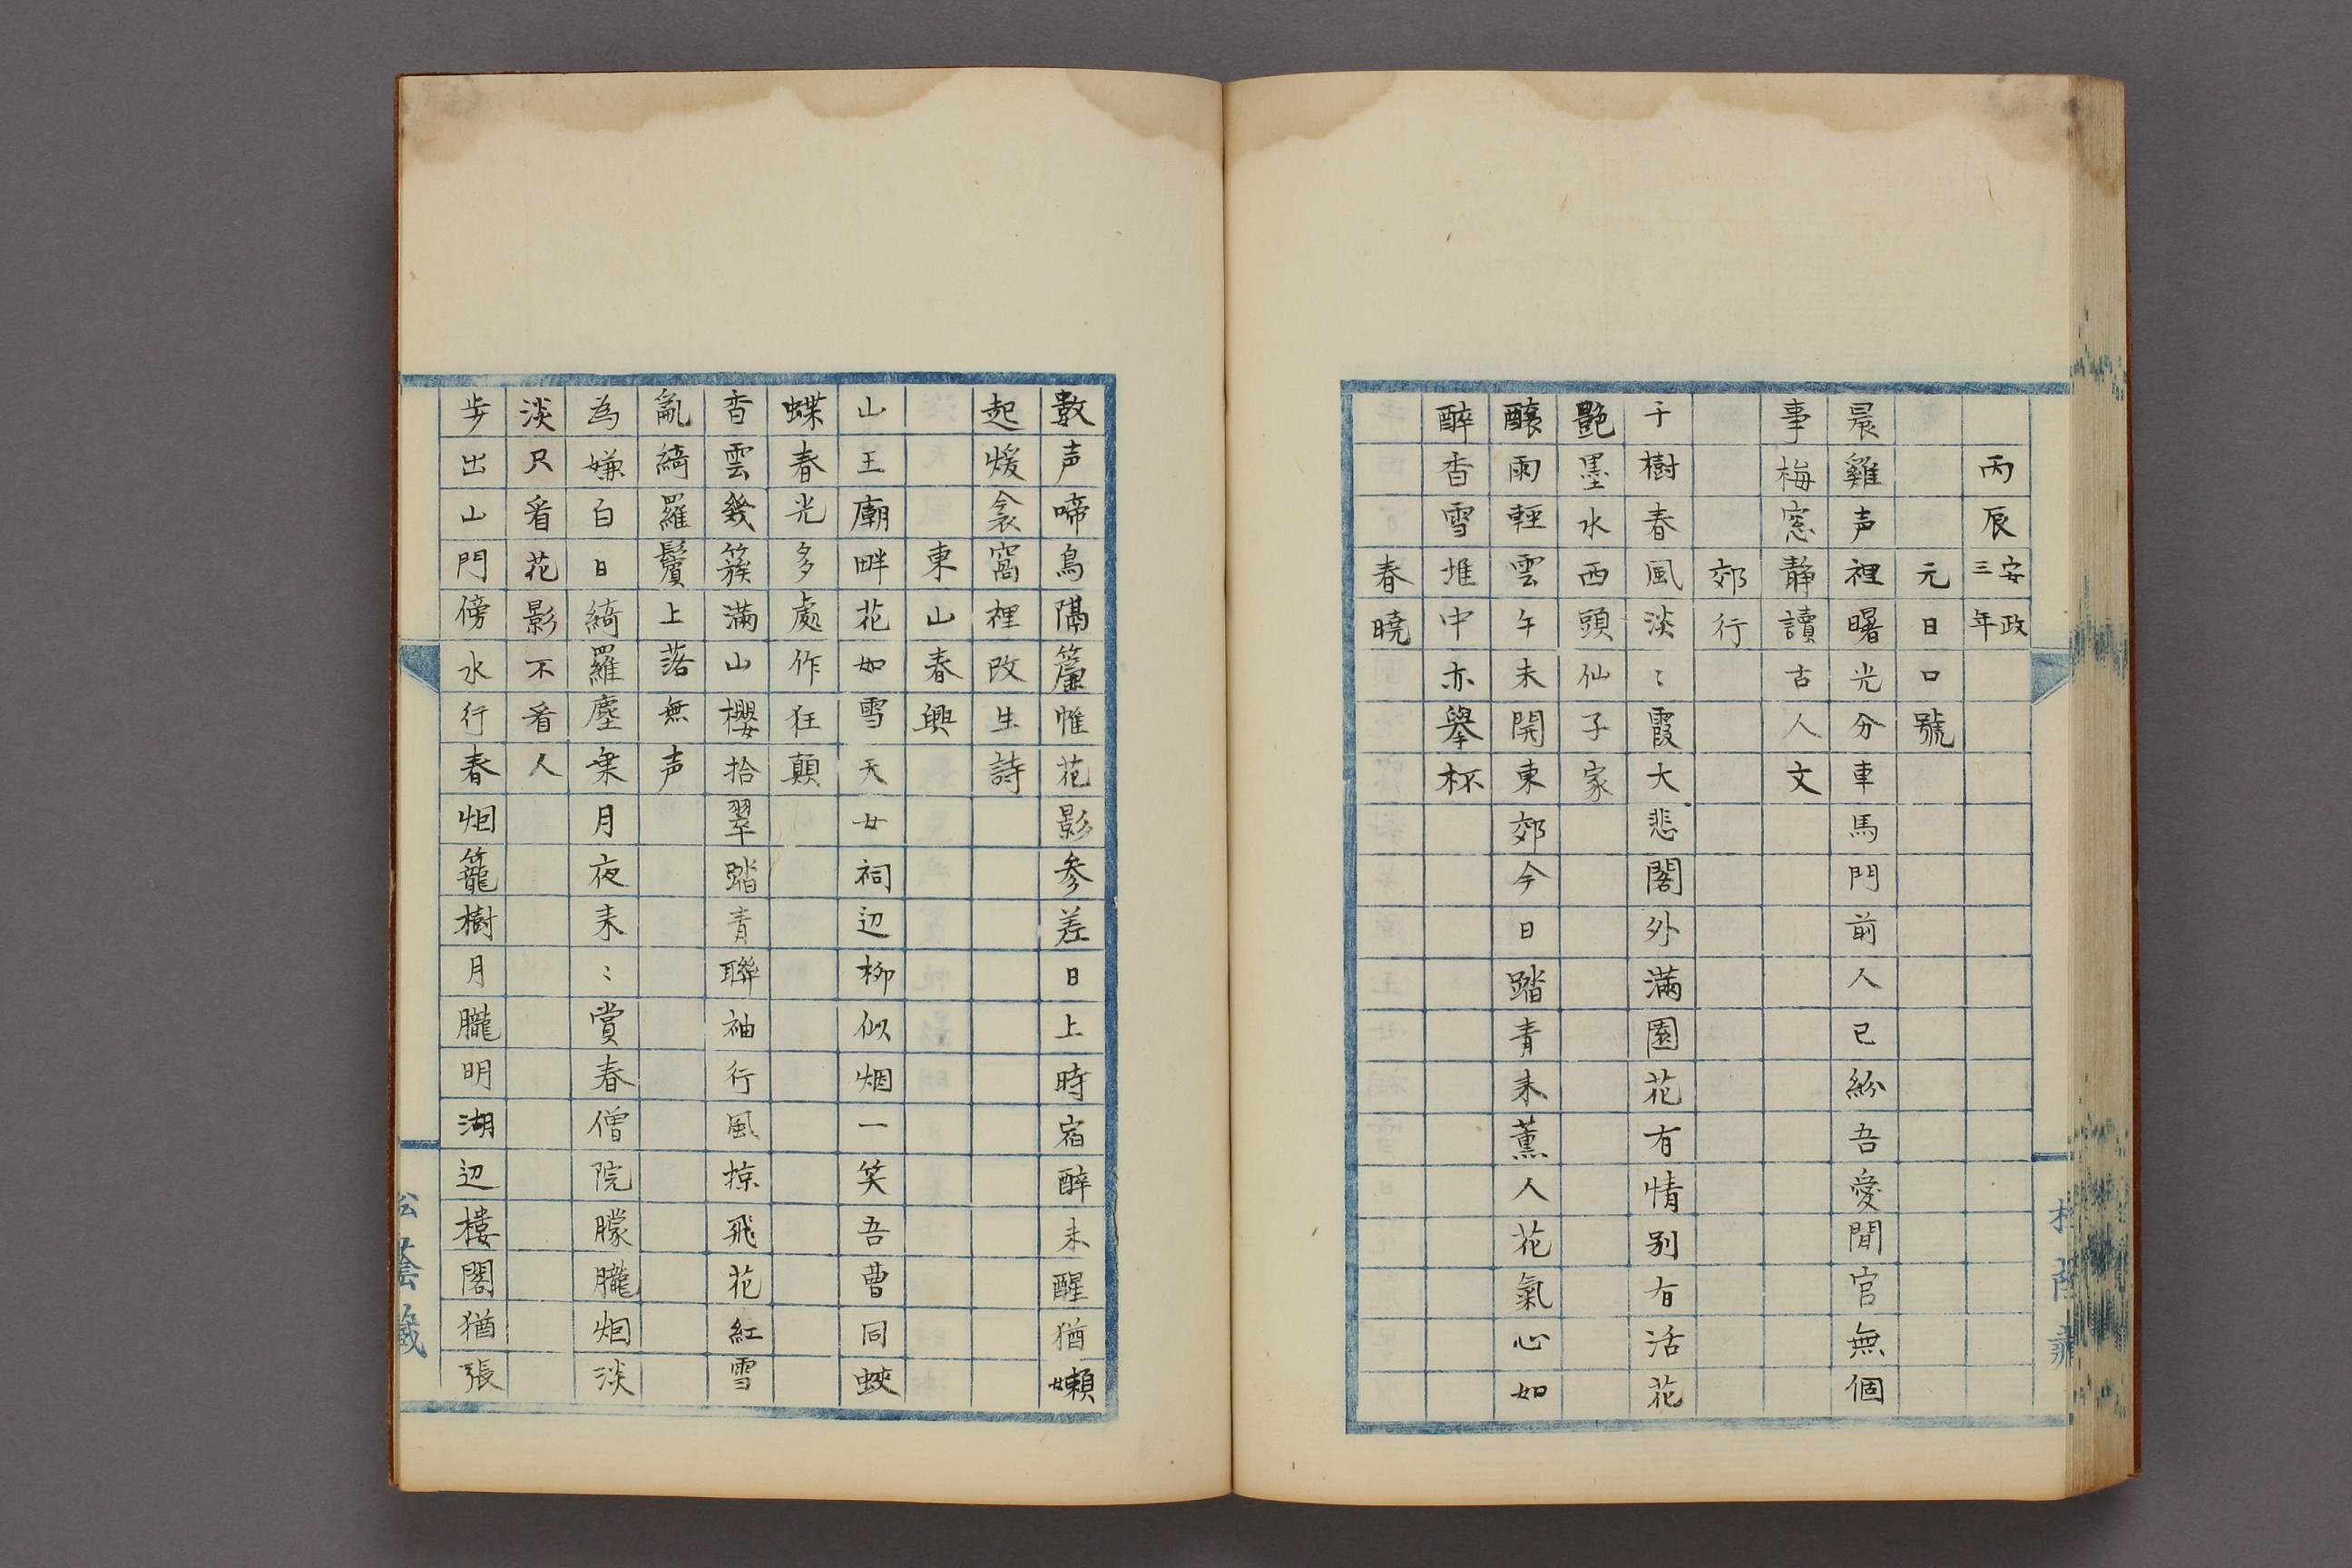 丙辰安政三年
元日口號
晨雞声裡曙光分車馬門前人已紛吾愛閒官無個
事梅窓静讀古人文
郊行
千樹春風淡〻霞大悲閣外滿園花有情别有活花
艷墨水西頭仙子家
釀雨輕雲午未開東郊今日踏青来薰人花氣心如
醉香雪堆中亦擧杯
春曉
數声啼鳥隔簾惟花影参差日上時宿醉未醒猶嬾
起煖衾窩裡改生詩
東山春興
山王廟畔花如雪天女祠辺柳似烟一笑吾曹同蛺
蝶春光多處作狂顛
香雲幾簇滿山櫻拾翠踏青聯袖行風掠飛花紅雪
亂綺羅鬢上落無声
為嫌白日綺羅塵乗月夜来〻賞春僧院朦朧烟淡
淡只看花影不看人
步出山門傍水行春烟籠樹月朧明湖辺樓閣猶張
松蔭藏